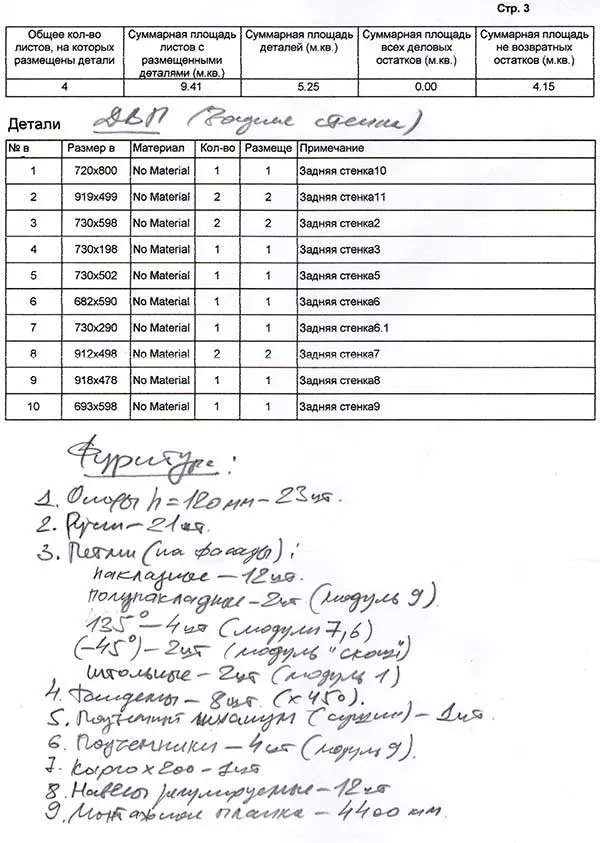 Стр. 3
Общее кол-во листов, на которых размещены детали | Суммарная площадь листов с размещенными деталями (м.кв.) | Суммарная площадь деталей (м.кв.) | Суммарная площадь всех деловых остатков (м.кв.) | Суммарная площадь не возвратных остатков (м.кв.)
4 | 9.41 | 5.25 | 0.00 | 4.15
Детали ДВП (Задние стенки)
№ в | Размер в | Материал | Кол-во | Размеще | Примечание
1 | 720x800 | No Material | 1 | 1 | Задняя стенка10
2 | 919x499 | No Material | 2 | 2 | Задняя стенка11
3 | 730x598 | No Material | 2 | 2 | Задняя стенка2
4 | 730x198 | No Material | 1 | 1 | Задняя стенка3
5 | 730x502 | No Material | 1 | 1 | Задняя стенка5
6 | 682x590 | No Material | 1 | 1 | Задняя стенка6
7 | 730x290 | No Material | 1 | 1 | Задняя стенка6.1
8 | 912x498 | No Material | 2 | 2 | Задняя стенка7
9 | 918x478 | No Material | 1 | 1 | Задняя стенка8
10 | 693x598 | No Material | 1 | 1 | Задняя стенка9
Фурнитура:
1. Опоры h=120мм – 23шт.
2. Ручки – 21шт.
3. Петли (на фасады):
накладные – 12шт.
полунакладные – 2шт (модуль 9).
135° – 4шт (модули 7,6)
(-45°) – 2шт (модуль "скош")
штольные – 2шт (модуль 1)
4. Тандемы – 8шт. (х450).
5. Подъемный механизм (сушки) – 1шт.
6. Подъемники – 4шт (модуль 9).
7. Карго х200 – 1шт
8. Навесы регулируемые – 12шт
9. Монтажная планка – 4400 мм.